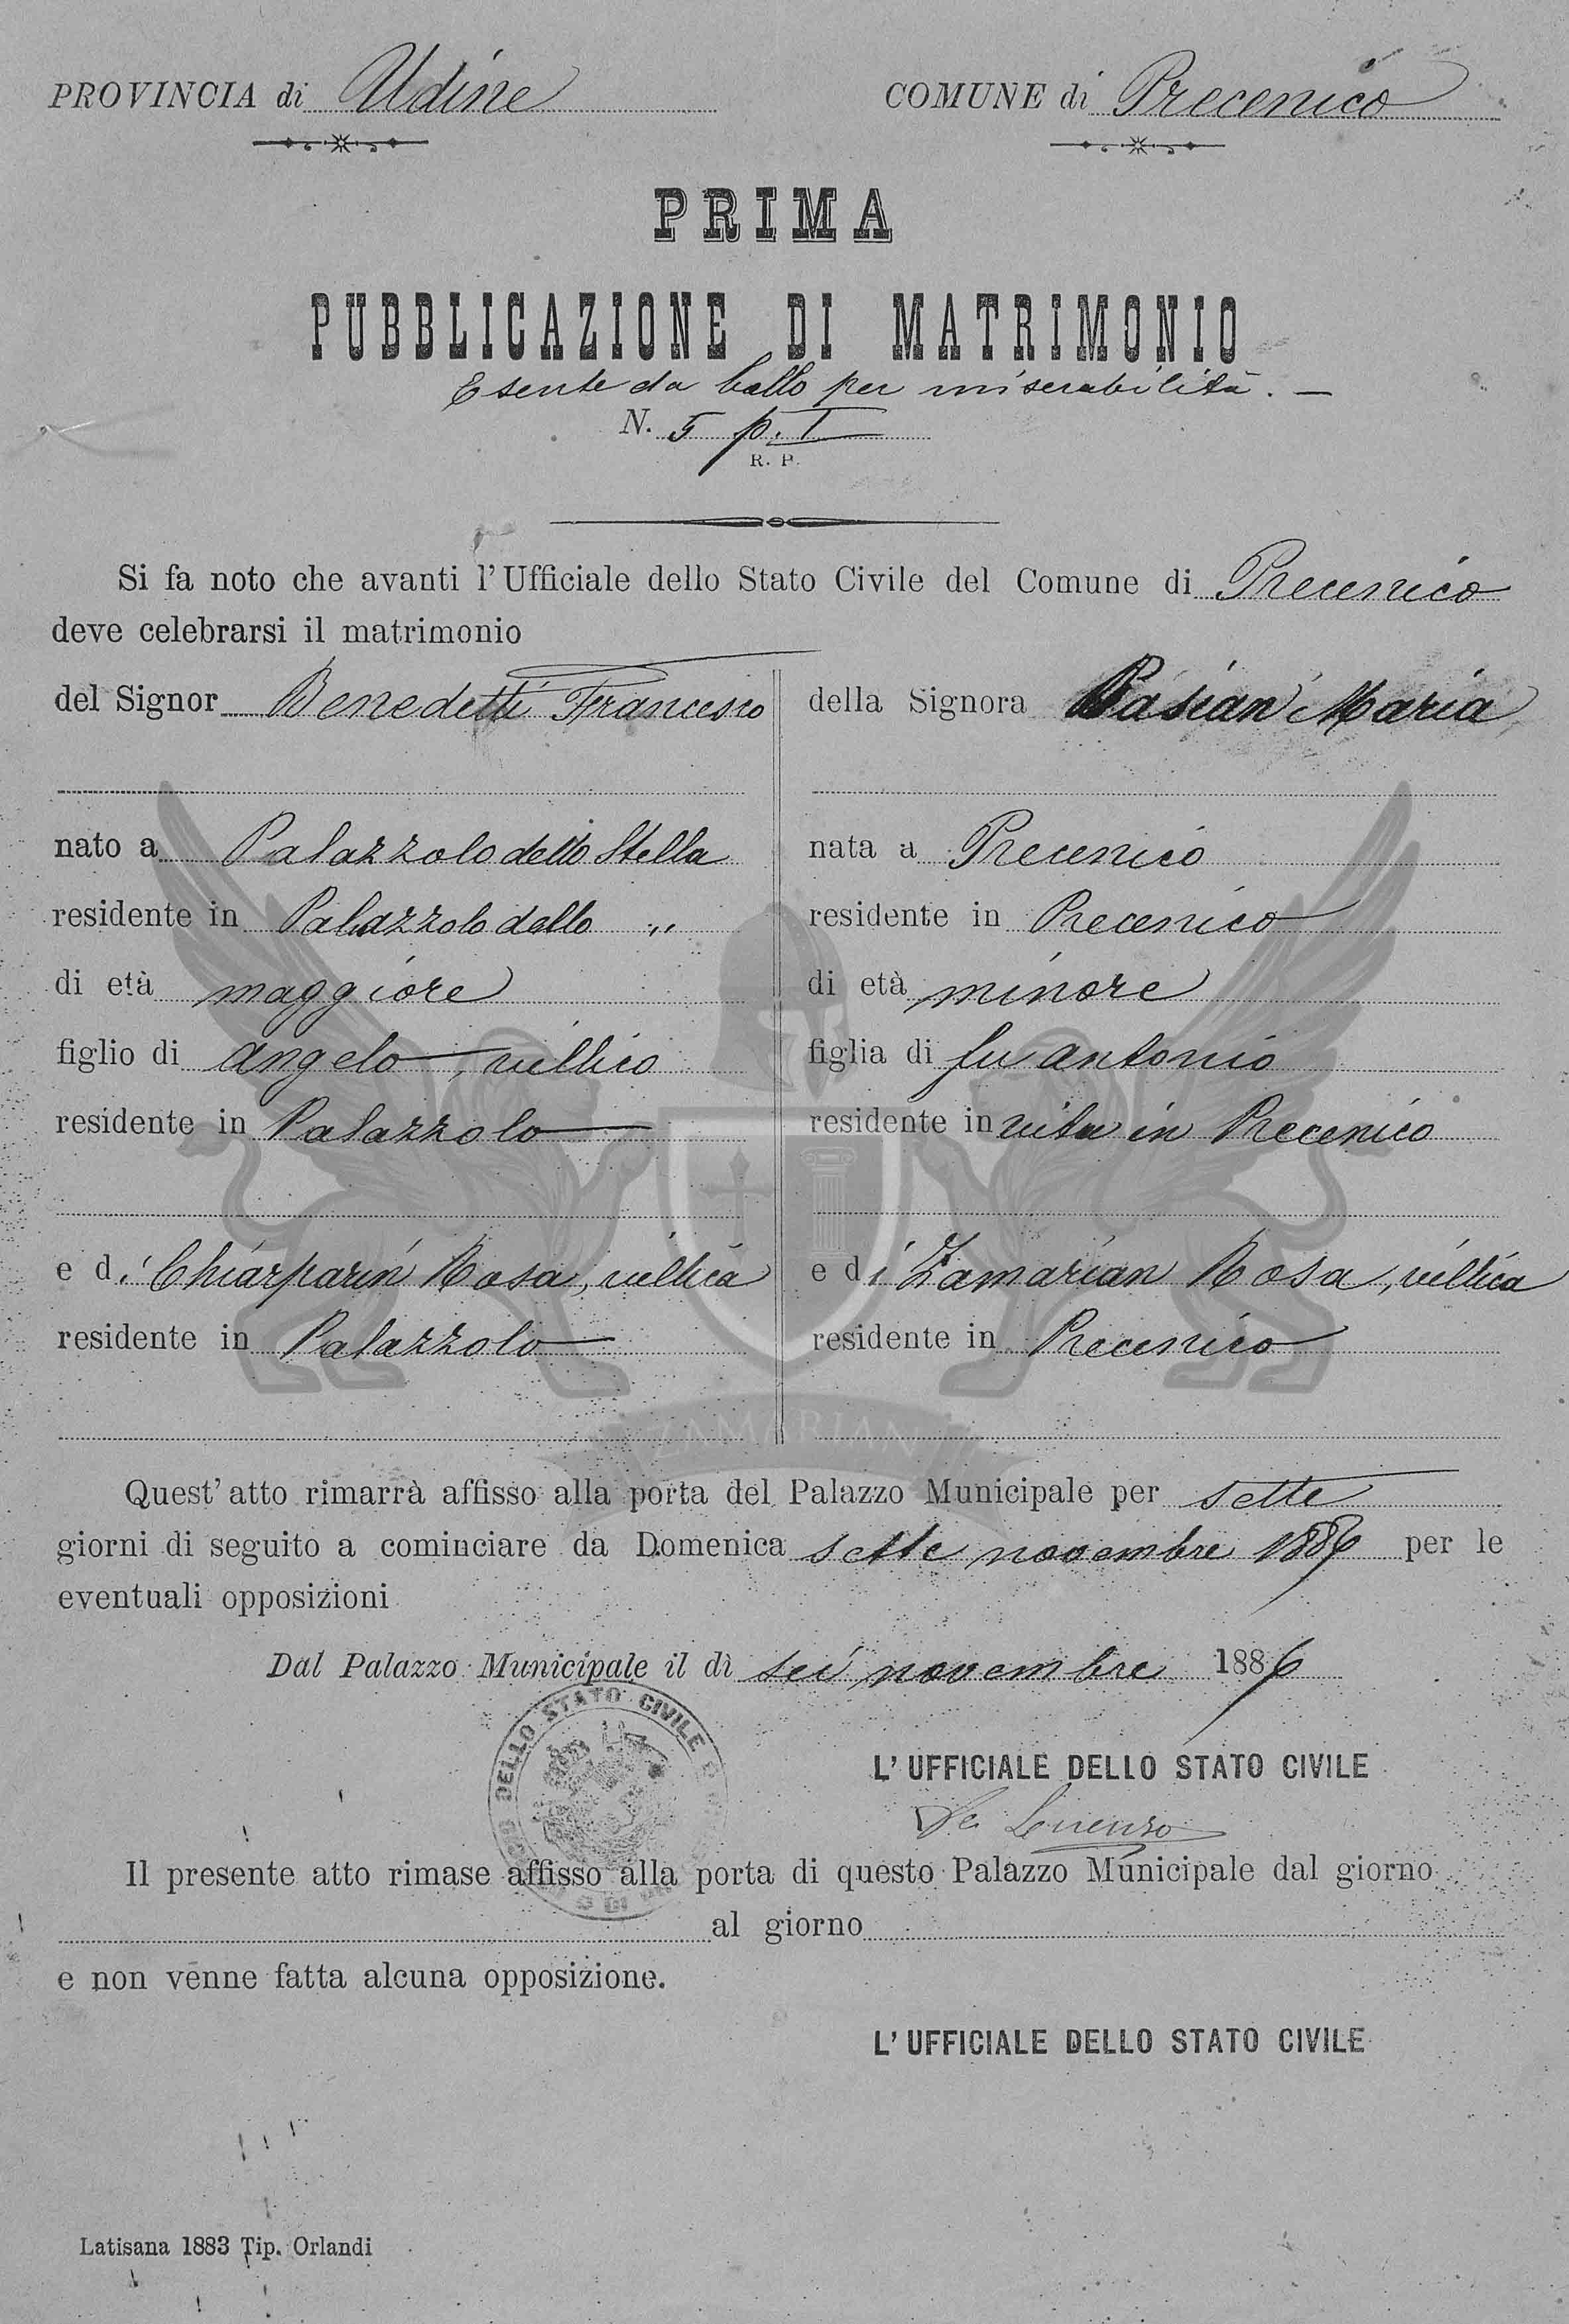 PROVINCIA di Udine COMUNE di Precenico
PRIMA
PUBBLICAZIONE DI MATRIMONIO
Esente da bollo per miserabilità. —
N. 5 p. I
R. P.
Si fa noto che avanti l'Ufficiale dello Stato Civile del Comune di Precenico
deve celebrarsi il matrimonio
del Signor Benedetti Francesco
nato a Palazzolo dello Stella
residente in Palazzolo dello "
di età maggiore
figlio di Angelo, villico
residente in Palazzolo
e di Chiarparin Rosa, villica
residente in Palazzolo
della Signora Pasian Maria
nata a Precenico
residente in Precenico
di età minore
figlia di fu Antonio
residente in vita in Precenico
e di Zamarian Rosa, villica
residente in Precenico
ZAMARIAN
Quest'atto rimarrà affisso alla porta del Palazzo Municipale per sette
giorni di seguito a cominciare da Domenica sette novembre 1886 per le
eventuali opposizioni
Dal Palazzo Municipale il dì sei novembre 1886
DELLO STATO CIVILE
L'UFFICIALE DELLO STATO CIVILE
De Lorenzo
Il presente atto rimase affisso alla porta di questo Palazzo Municipale dal giorno
al giorno
e non venne fatta alcuna opposizione.
L'UFFICIALE DELLO STATO CIVILE
Latisana 1883 Tip. Orlandi